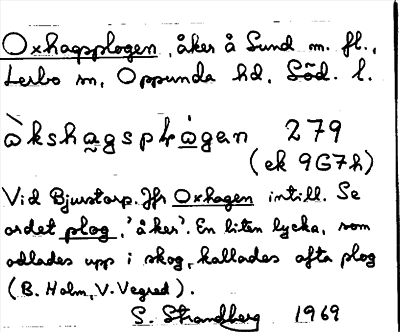 Oxhagsplogen, åker å Sund m. fl.,
Lerbo sn, Oppunda hd, Söd. l.
ὼkshag̰sphω̇gen 279
(ek 9G7h)
Vid Bjurstorp. Jfr Oxhagen intill. Se
ordet plog, 'åker'. En liten lycka, som
odlades upp i skog, kallades ofta plog
(B. Holm, V. Vegred).
S. Strandberg 1969